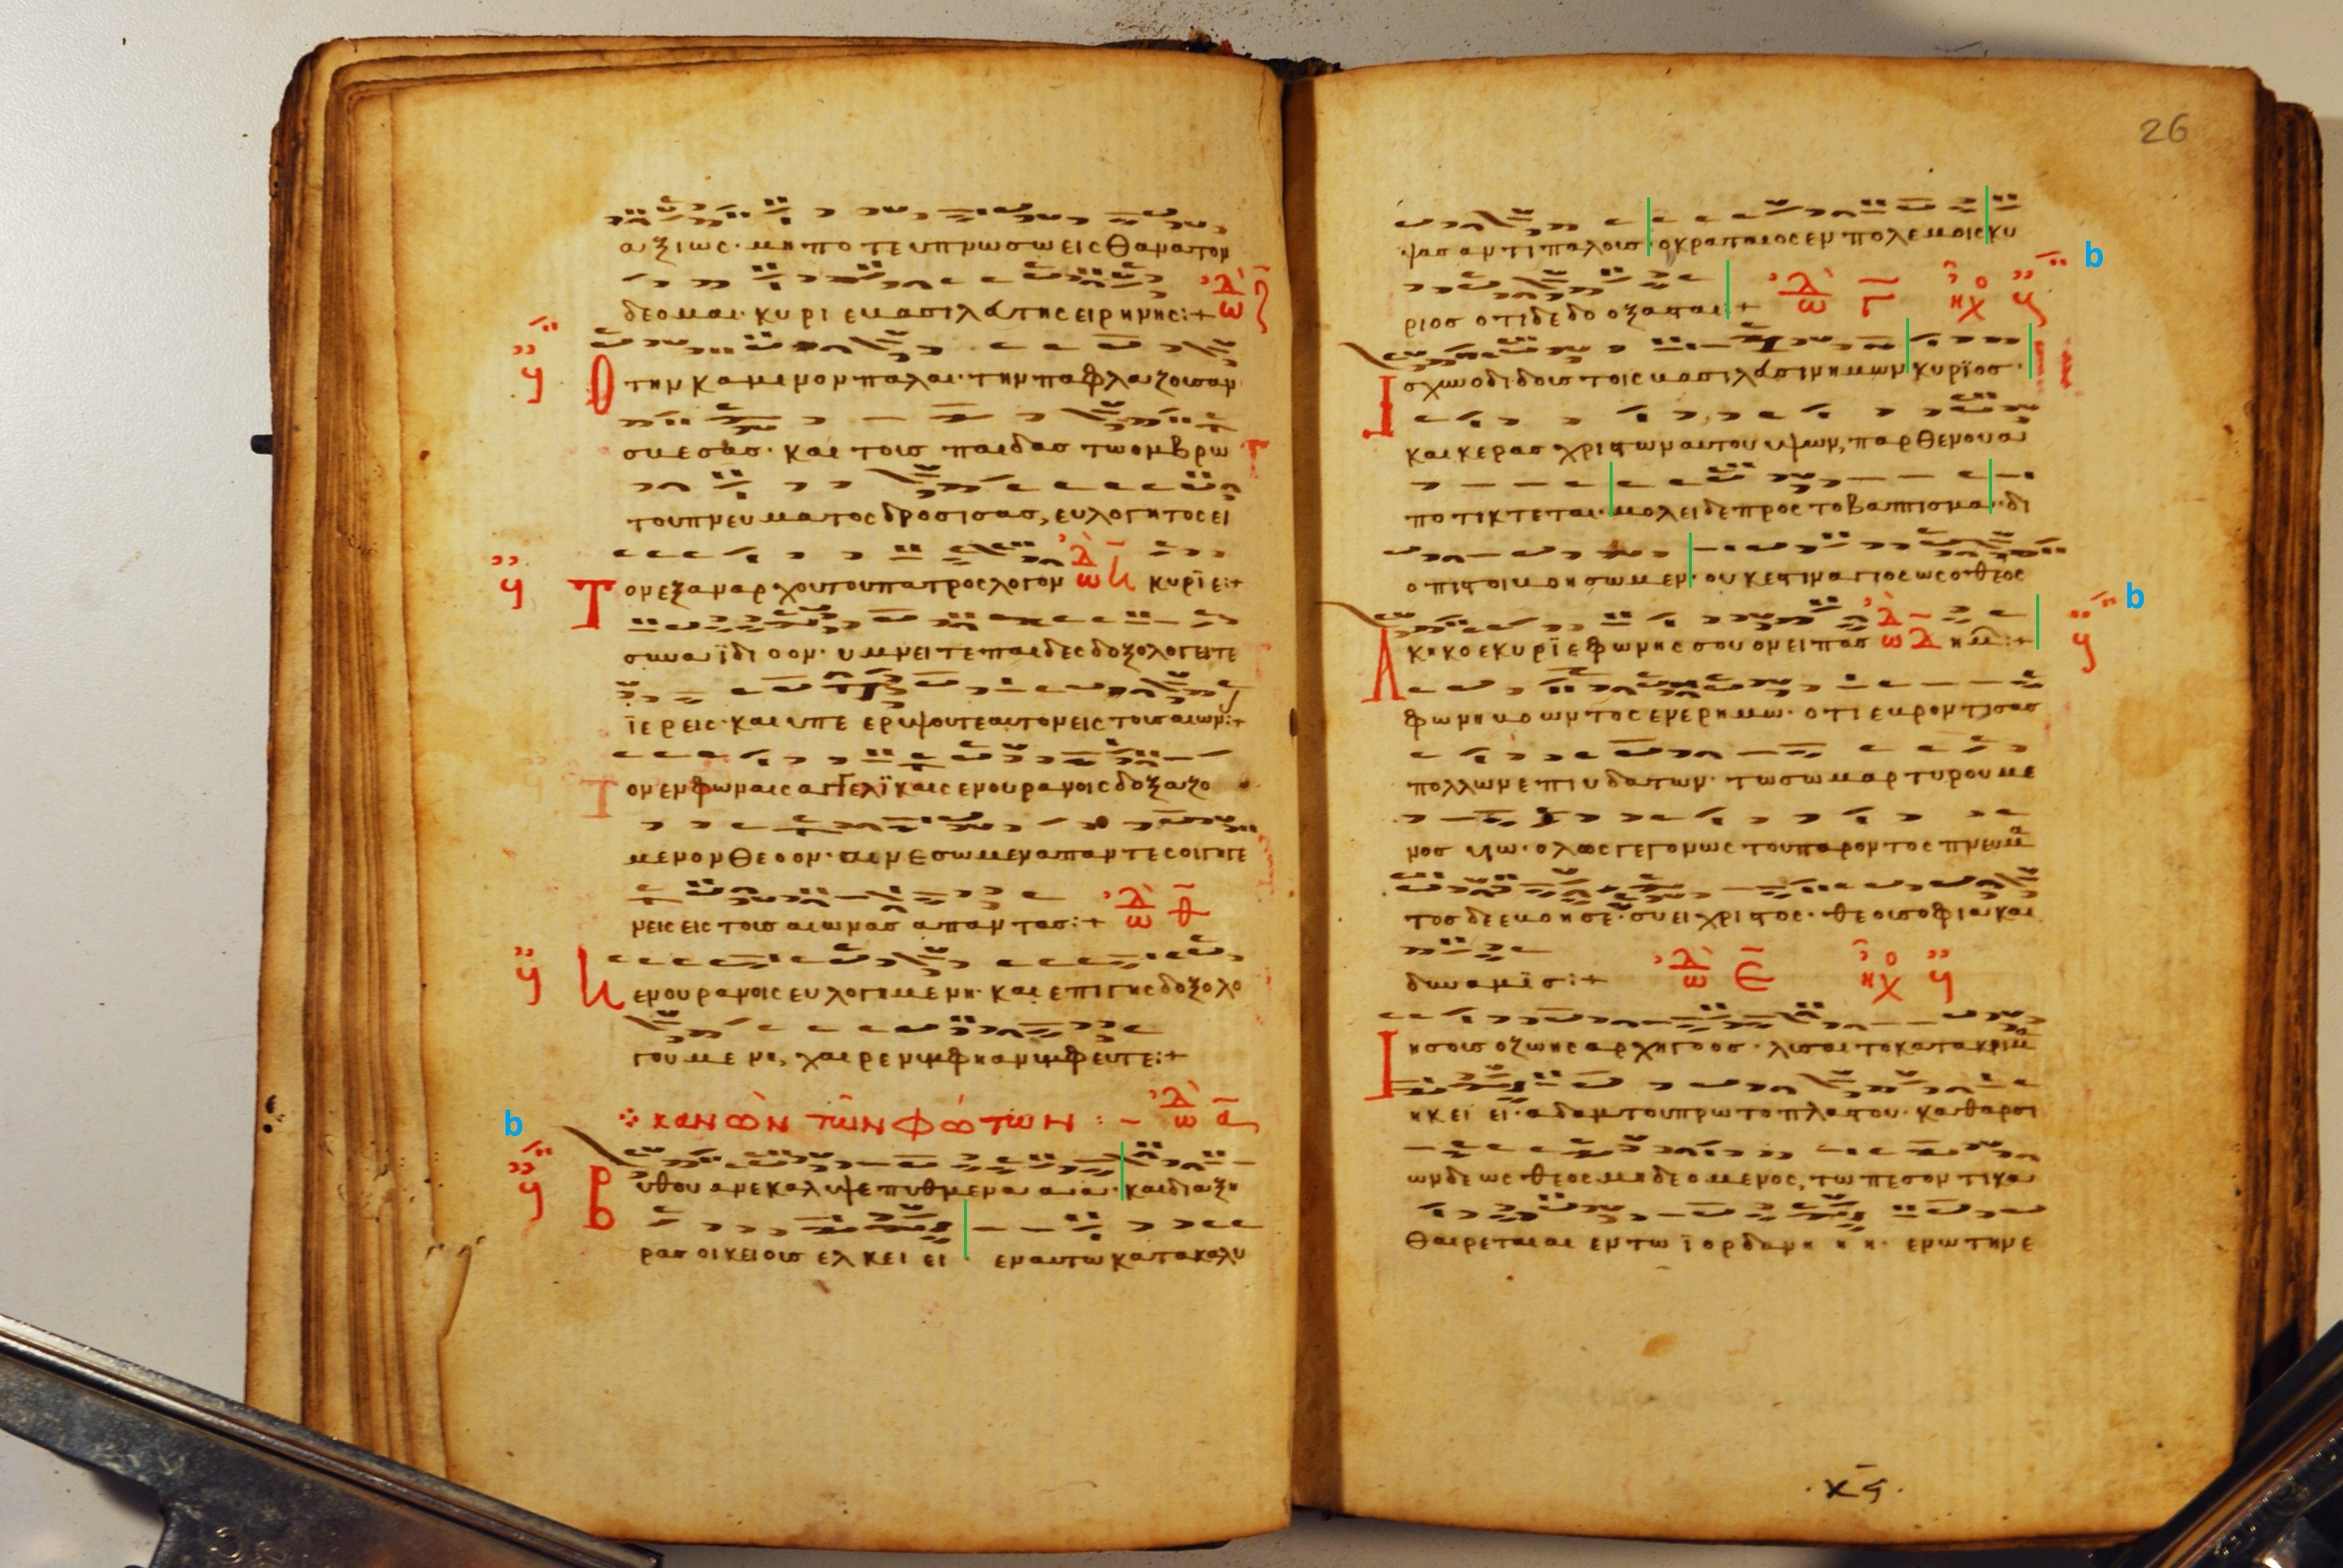 αξιως· μη πο τε υπνωσω εις θανατον
δεομαι· κυρι ε βασιλευ της ειρηνης:+
ᾨδὴ ζ
Ο την καμινον παλαι· την παφλαζουσαν
σβεσας· και τους παιδας τω ομβρω
του πνευματος δροσισας, ευλογητος ει
Τον εξ αναρχου του πατρος λογον ᾠδὴ η κυριε:+
συναϊδι οον· υμνειτε παιδες δοξολογειτε
ϊερεις· και υπε ερυψουτε αυτον εις τους αιων:+
Τον εν φωναις αγγελϊκαις εν ουρανοις δοξαζο
μενον θεοον·
νεις εις τους αιωνας απαντας:+ ᾠδὴ θ
Η εν ουρανοις ευλογημενη· και επι γης δοξολο
γουμενη, χαιρε νυμφη ανυμφευτε:+
κανοὼν τῶν φώτων :– ᾠδὴ α
b
Βυθου ανεκαλυψε πυθμενα αια· και δια ξη
ρας οικειους ελ κει ει· εν αυτω κατακαλυ
26
ψας αντιπαλους· ο κραταιος εν πολεμοις κυ
ριος οτι δεδο οξασται:+ ᾠδὴ γ ηχο
b
Ισχυν ο διδους τοις βασιλευσιν ημων κυρϊος·
και κερας χριστων αυτου υψων, παρθενου α
ποτικτεται· μολει δε προς το βαπτισμα· δι
ο πιστοι βοησωμεν· ουκ εστιν αγιος ως ο θεος
Ακηκοε κυρϊε φωνης σου ον ειπας ᾠδὴ δ ημ:+
b
φωνη βοωντος εν ερημω· οτι εβροντησας
πολλων επι υδατων· τω σω μαρτυρουμε
νος υιω· ολως γεγονως του παροντος πνευμα
τος δε εβοησε· συ ει χριστος· θεου σοφια και
δυναμϊς:+ ᾠδὴ ε ηχο
Ιησους ο ζωης αρχηγοος· λυσαι το κατακριμα
ηκει ει· αδαμ του πρωτοπλαστου· καθαρσι
ων δε ως θεος μη δεομενος, τω πεσοντι κα
θαιρεται αι εν τω ϊορδανη η η· εν ω την ε
·κς·